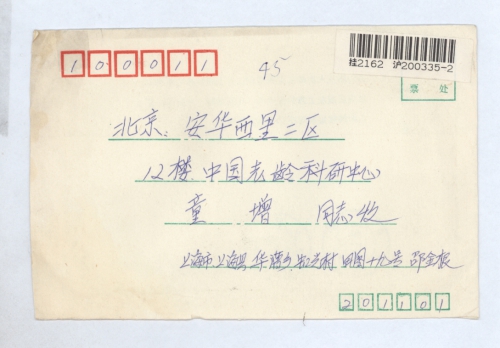 桂2162 沪200335-2
100011
45
票 处
北京: 安华西里二区
12楼 中国老龄科研中心
童 增 同志收
上海市上海县华漕乡 村 四图十九号 邵金根
201101